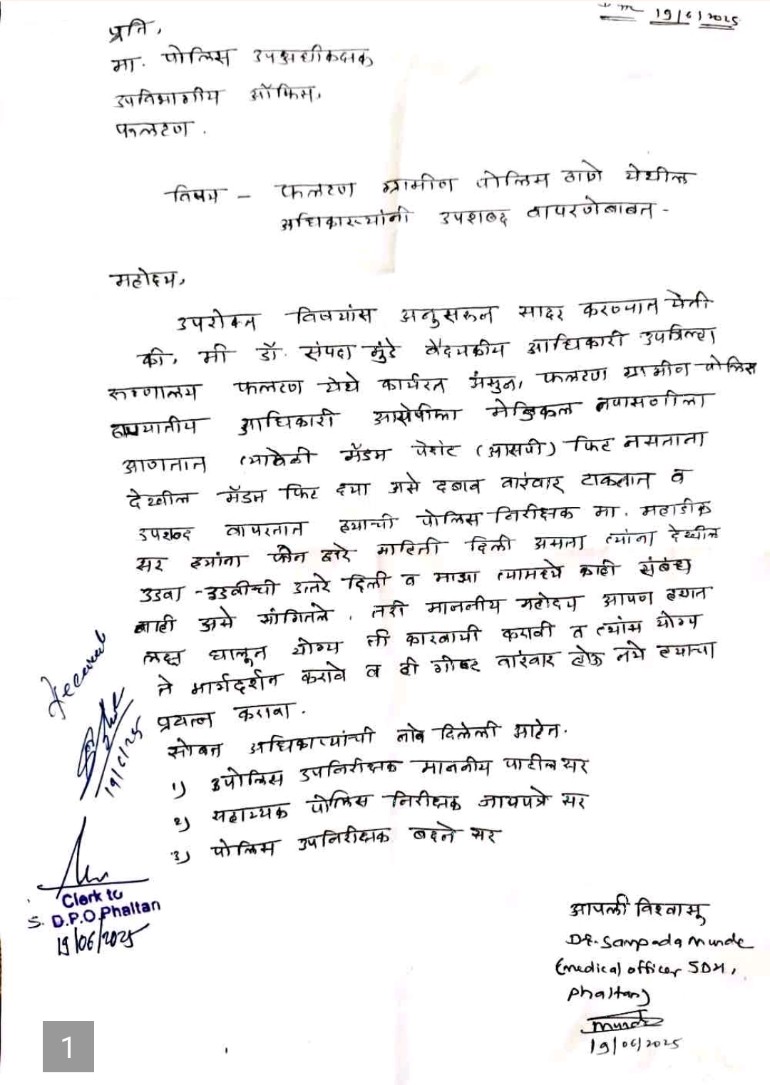 19/6/2025
प्रति,
मा. पोलिस उपअधीक्षक
उपविभागीय ऑफिस,
फलटण.
विषय - फलटण ग्रामीण पोलिस ठाणे येथील
अधिकाऱ्यांनी उपशब्द वापरणेबाबत -
महोदय,
उपरोक्त विषयांस अनुसरून सादर करण्यात येती
की, मी डॉ. संपदा मुंडे वैद्यकीय आधिकारी उपजिल्हा
रुग्णालय फलटण येथे कार्यरत असुन, फलटण ग्रामीण पोलिस
आधिकारी आरोपीला मेडिकल तपासणीला
आणतात त्यावेळी मॅडम पेशंट (आरोपी) फिट नसताना
देखील मॅडम फिट द्या असे दबाव वारंवार टाकतात व
उपशब्द वापरतात ह्याची पोलिस निरीक्षक मा. महाडीक
सर ह्यांना फोन द्वारे माहिती दिली असता त्यांना देखील
उडवा-उडवीची उत्तरे दिली व माझा त्यामध्ये काही संबंध
नाही असे सांगितले. तरी माननीय महोदय आपण ह्यात
लक्ष घालून योग्य ती कारवायी करावी त त्यांस योग्य
ते मार्गदर्शन करावे व ही गोष्ट वारंवार होऊ नये ह्याचा
प्रयत्न करावा.
सोबत अधिकाऱ्यांची नांवे दिलेली आहेत.
1) पोलिस उपनिरीक्षक माननीय पाटील सर
2) सहाय्यक पोलिस निरीक्षक जायपत्रे सर
3) पोलिस उपनिरीक्षक बदने सर
Received
19/6/25
Clerk to
S. D.P.O.Phaltan
19/06/2025
आपली विश्वासू
Dr. Sampada Munde
(medical officer SDH,
phaltan)
Munde
19/06/2025
1